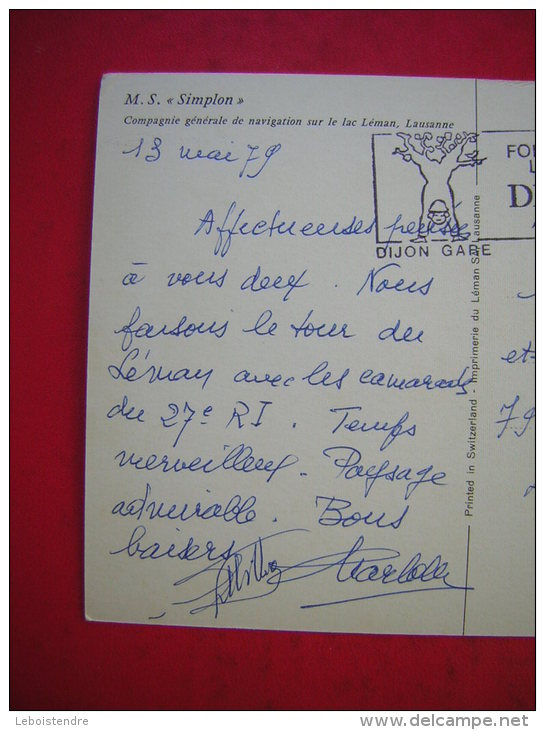 M. S. « Simplon »
Compagnie générale de navigation sur le lac Léman, Lausanne
13 mai 79
Affectueuses pensées
à vous deux. Nous
faisons le tour du
Léman avec les camarades
du 27e RI. Temps
merveilleux. Paysage
admirable. Bons
baisers
DIJON GARE
Printed in Switzerland - Imprimerie du Léman SA, Lausanne
et
79
Leboistendre
www.delcampe.net